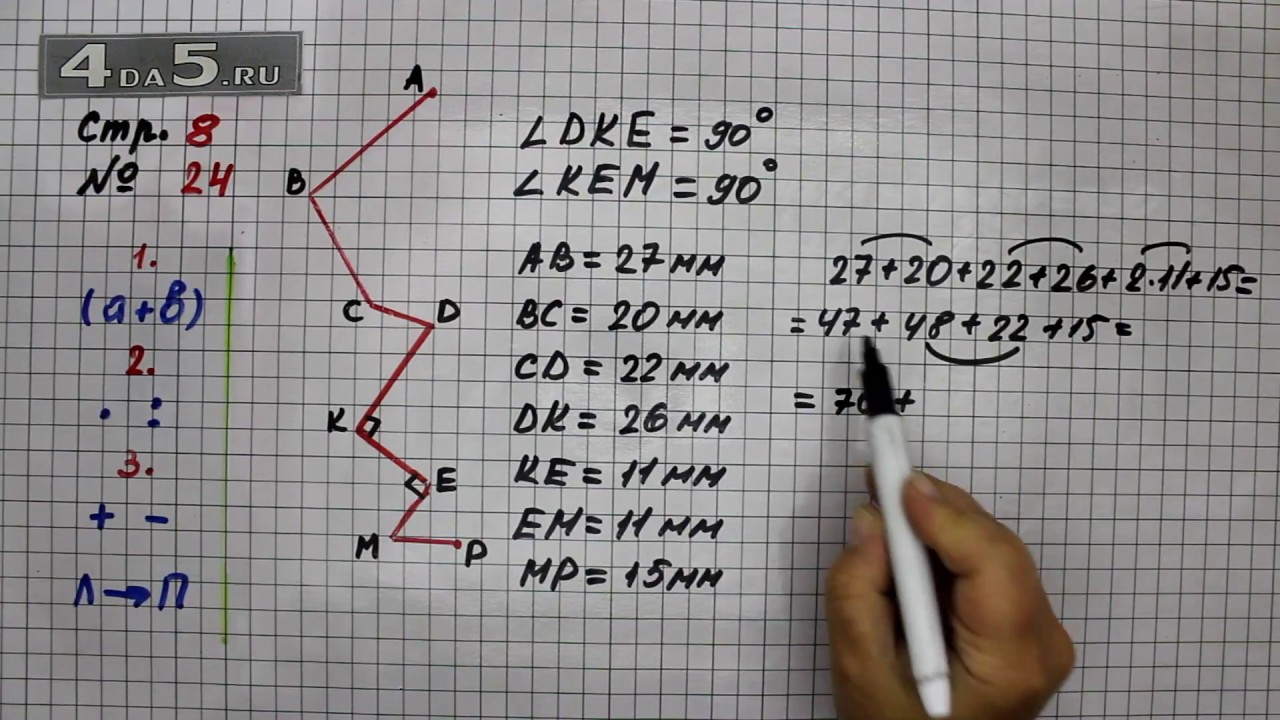 4DA5.RU
Стр. 8
№ 24
1.
(a+b)
2.
· :
3.
+ -
Л→П
A
B
C
D
K
E
M
P
∠DKE = 90°
∠KEM = 90°
AB = 27 мм
BC = 20 мм
CD = 22 мм
DK = 26 мм
KE = 11 мм
EM = 11 мм
MP = 15 мм
27+20+22+26+2·11+15=
=47+48+22+15=
= 70 +